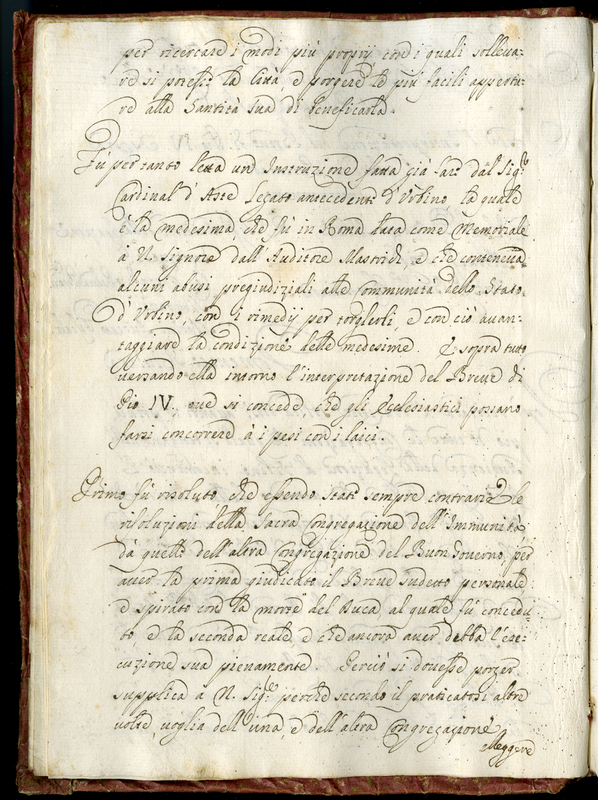 per ricercare i modi più proprij con i quali solleua-
re si potesse la Città, e porgere le più facili appertu-
re alla Santità Sua di beneficarla.
Fù per tanto letta un Instruzione fatta già fare dal Sigr
Cardinal d'Aste Legato antecedente d'Urbino, la quale
è la medesima, che fù in Roma data come Memoriale
à N. Signore dall'Auditore Mastridi, e che conteneua
alcuni abusi pregiudiziali alle Communità dello Stato
d'Urbino, con i rimedij per torglerli, e con ciò auan-
taggiare la condizione delle medesime. E sopra tutto
uersando ella intorno l'interpretazione del Breue di
Pio IV. oue si concede, che gli Ecclesiastici possano
farsi concorrere à i pesi con i laici.
Primo fù risoluto che essendo state sempre contrarie le
risoluzioni della Sacra Congregazione dell'Immunità
dà quelle dell'altra Congregazione del Buon Gouerno, per
auer la prima giudicato il Breue sudetto personale
e spirato con la morte del Duca al quale fù concedu-
to, e la seconda reale, e che ancora auer debba l'ese-
cuzione sua pienamente. Perciò si douesse porger
supplica à N. Sigre perche secondo il praticatosi altre
uolte uoglia dell'una, e dell'altra Congregazione
eleggere